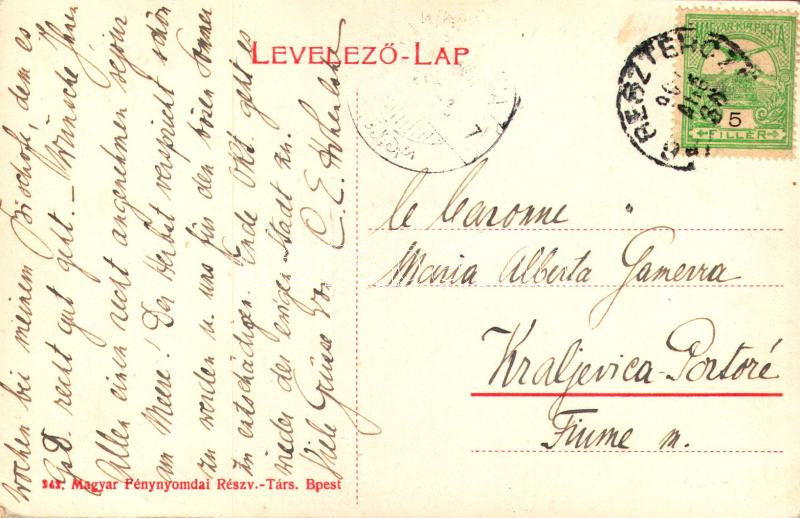 LEVELEZŐ-LAP
MAGYAR KIR. POSTA
5
FILLÉR
BESZTERCZE
Wochen bei meinem Bischof, dem es
G.s.D. recht gut geht. – Wünsche Ihnen
Allen einen recht angenehmen
am Meere! Der Herbst verspricht schön
zu werden u. uns für den bösen Sommer
zu entschädigen. Ende Okt. geht es
wieder der ewigen Stadt zu.
Viele Grüsse von C. E. Hohenlohe
Le Baronne
Maria Alberta Gamerra
Kraljevica-Portoré
Fiume m.
343. Magyar Pénynyomdai Részv.-Társ. Bpest